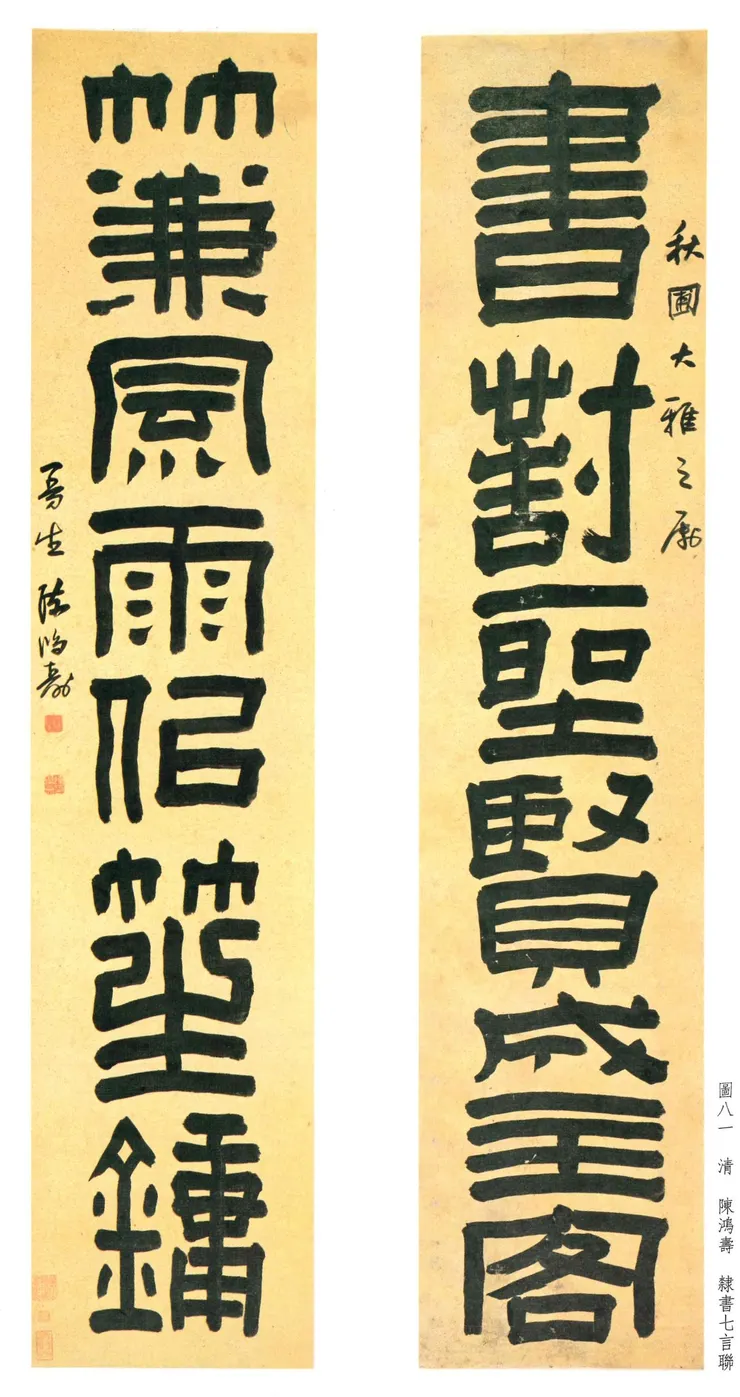 秋圃大雅之屬
書對聖賢成主客
竹兼風雨侣笙鏞
曼生陳鴻壽
圖八一 清 陳鴻壽 隸書七言聯